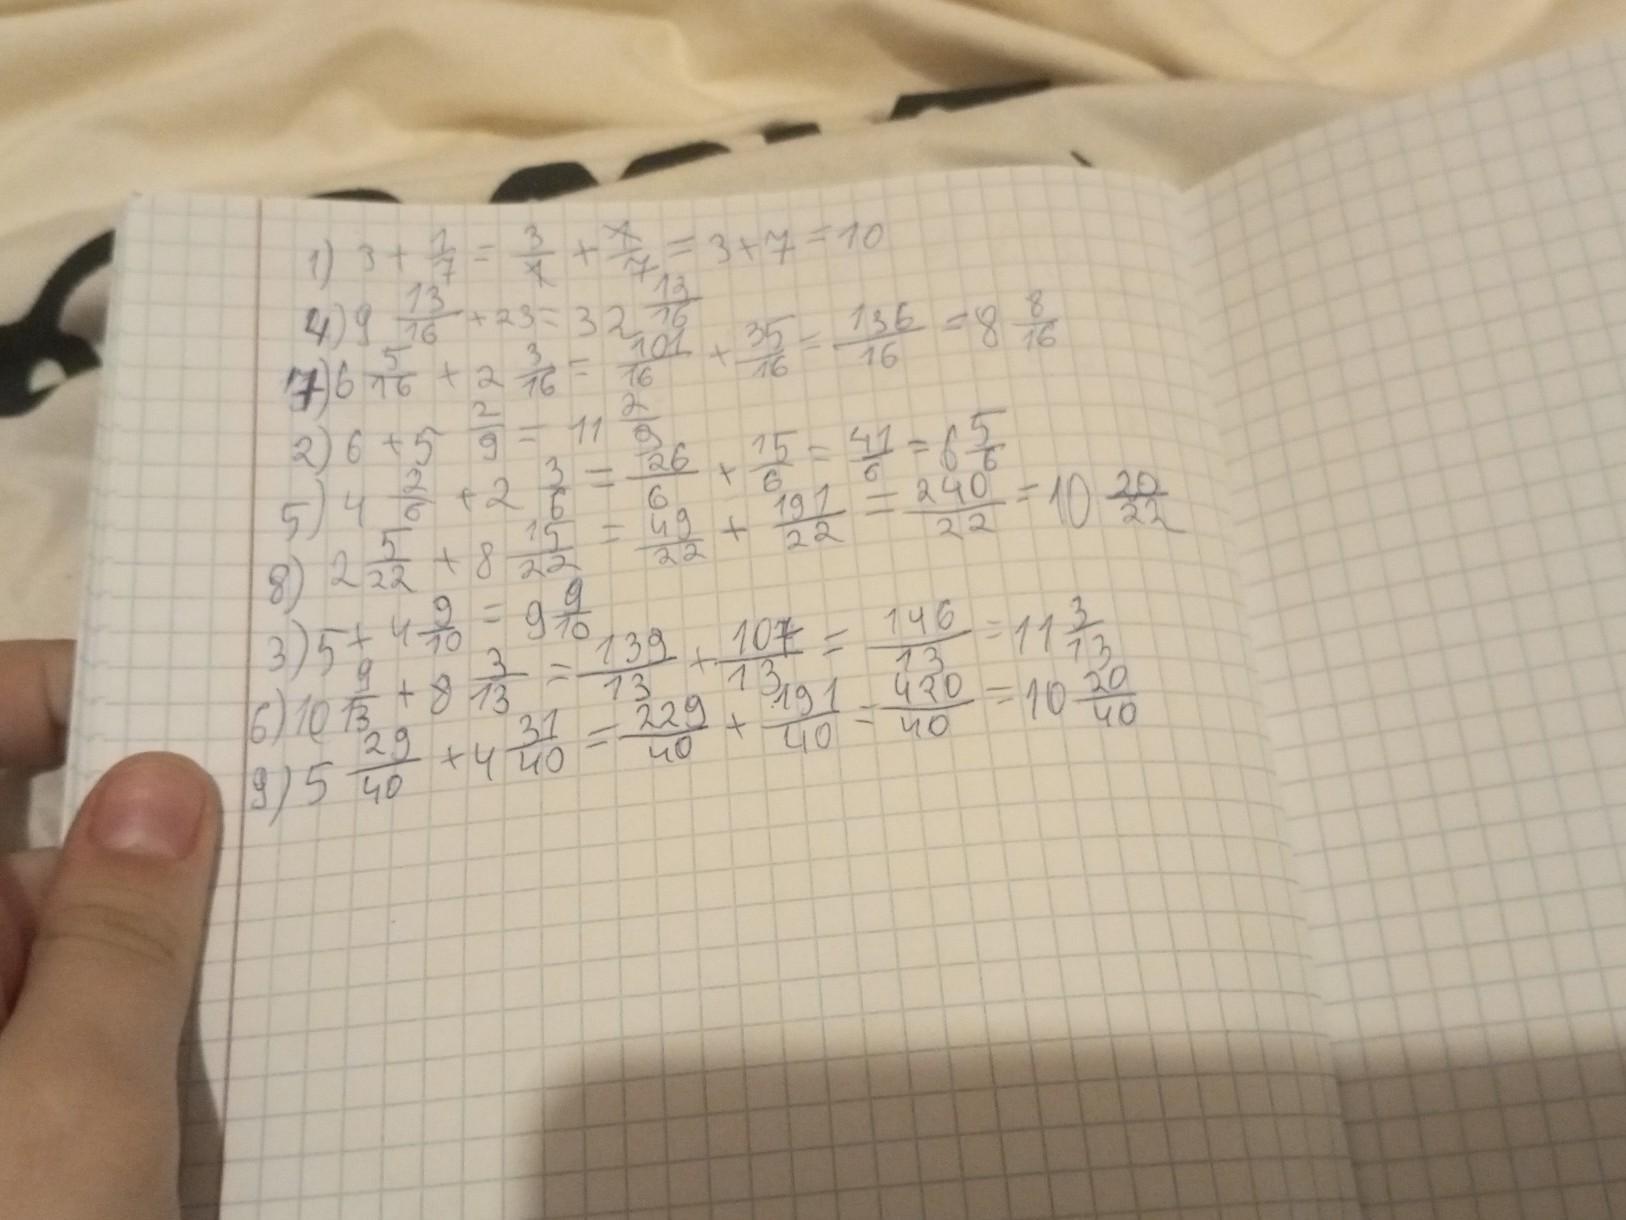 1) 3 + 1/7 = 3/1 + 1/7 = 3+7 = 10
4) 9 13/16 + 23 = 32 13/16
7) 6 5/16 + 2 3/16 = 101/16 + 35/16 = 136/16 = 8 8/16
2) 6 + 5 2/9 = 11 2/9
5) 4 2/6 + 2 3/6 = 26/6 + 15/6 = 41/6 = 6 5/6
8) 2 5/22 + 8 15/22 = 49/22 + 191/22 = 240/22 = 10 20/22
3) 5 + 4 9/10 = 9 9/10
6) 10 9/13 + 8 3/13 = 139/13 + 107/13 = 146/13 = 11 3/13
9) 5 29/40 + 4 31/40 = 229/40 + 191/40 = 420/40 = 10 20/40